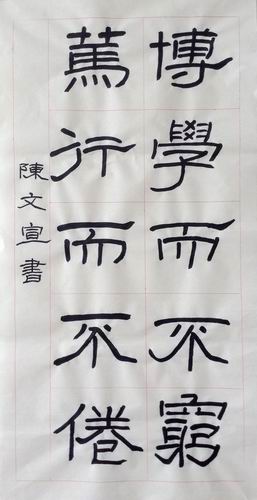 博學而不窮
篤行而不倦
陳文宣書